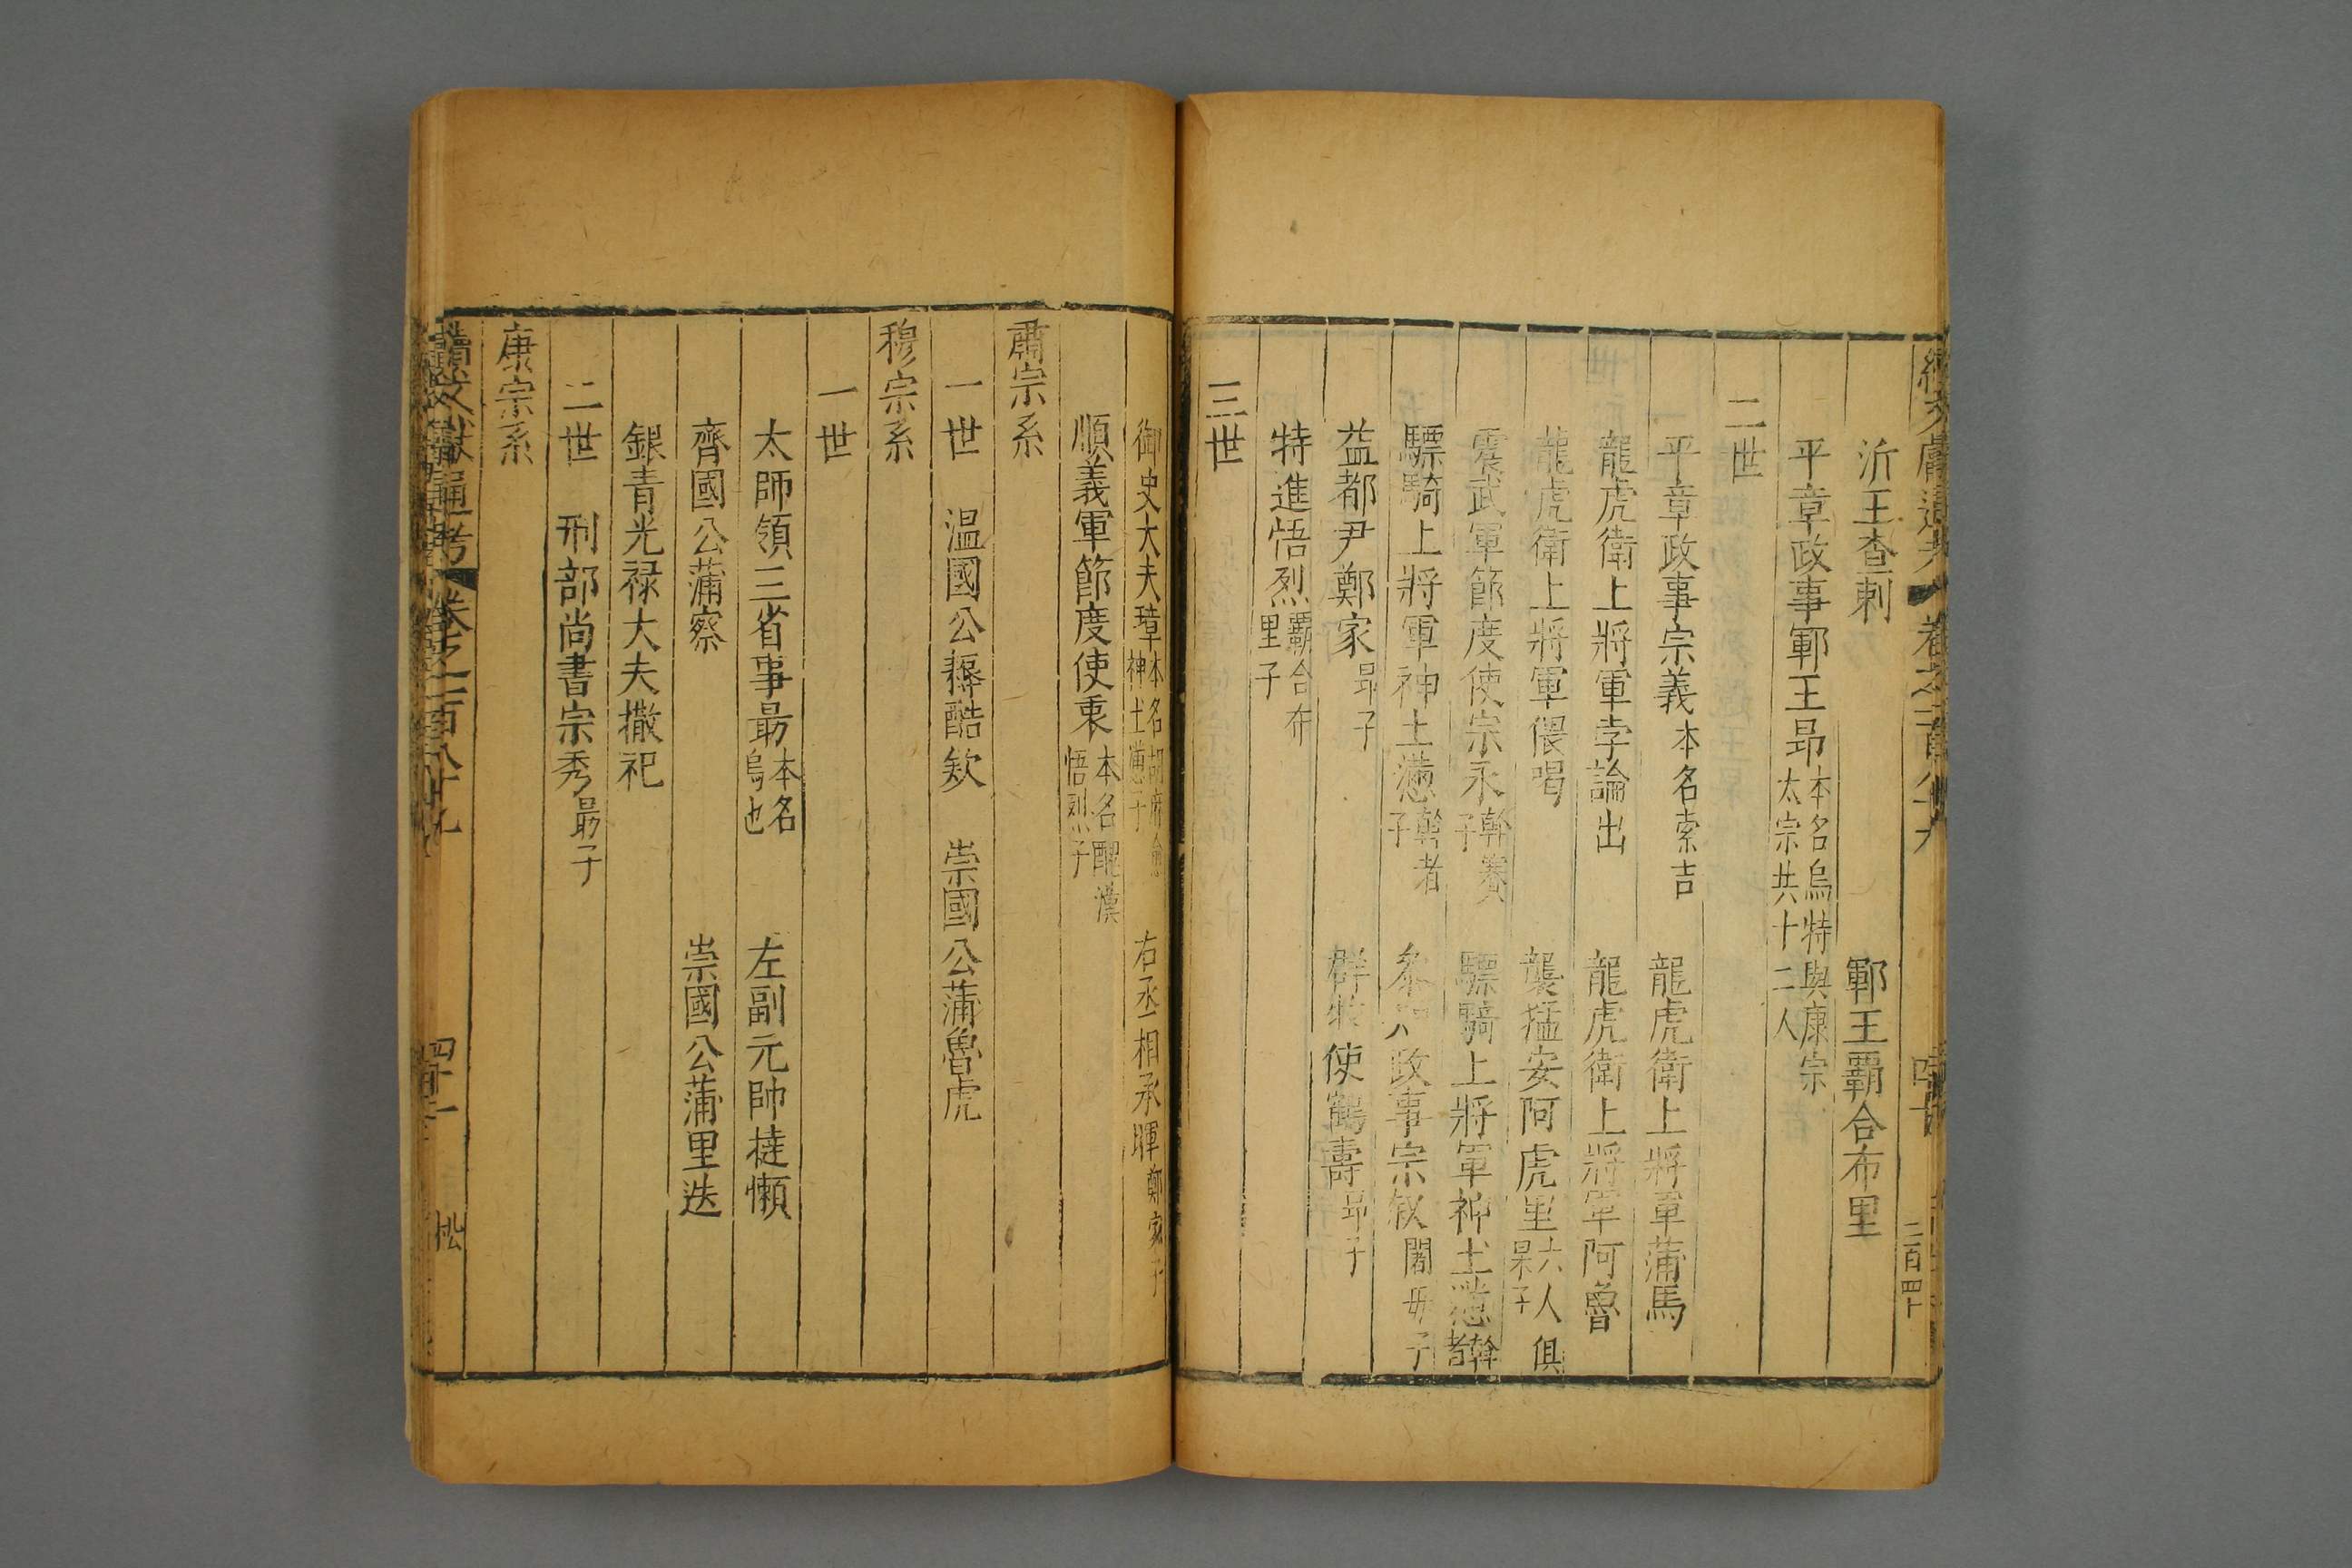 沂王查剌　鄆王霸合布里
平章政事鄆王昻本名烏特與康宗太宗共十二人
二世
平章政事宗義本名索吉　龍虎衛上將軍蒲馬
龍虎衛上將軍孛論出　龍虎衛上將軍阿魯
龍虎衛上將軍偎喝　襲猛安阿虎里六人俱杲子
震武軍節度使宗永斡賽子　驃騎上將軍神土懣斡者
驃騎上將軍神土懣斡者子　參知政事宗敘闍毋子
益都尹鄭家昻子　群牧使鶴壽昻子
特進悟烈霸合布里子
三世
御史大夫璋本名胡麻愈神土懣子　右丞相承暉鄭家子
順義軍節度使秉本名醌漢悟烈子
肅宗系
一世　温國公耨酷欸　崇國公蒲魯虎
穆宗系
一世
太師領三省事勗本名烏也　左副元帥撻懶
齊國公蒲察　崇國公蒲里迭
銀青光禄大夫撒祀
二世　刑部尚書宗秀勗子
康宗系
續文獻通考　卷之二百八　四十一　松